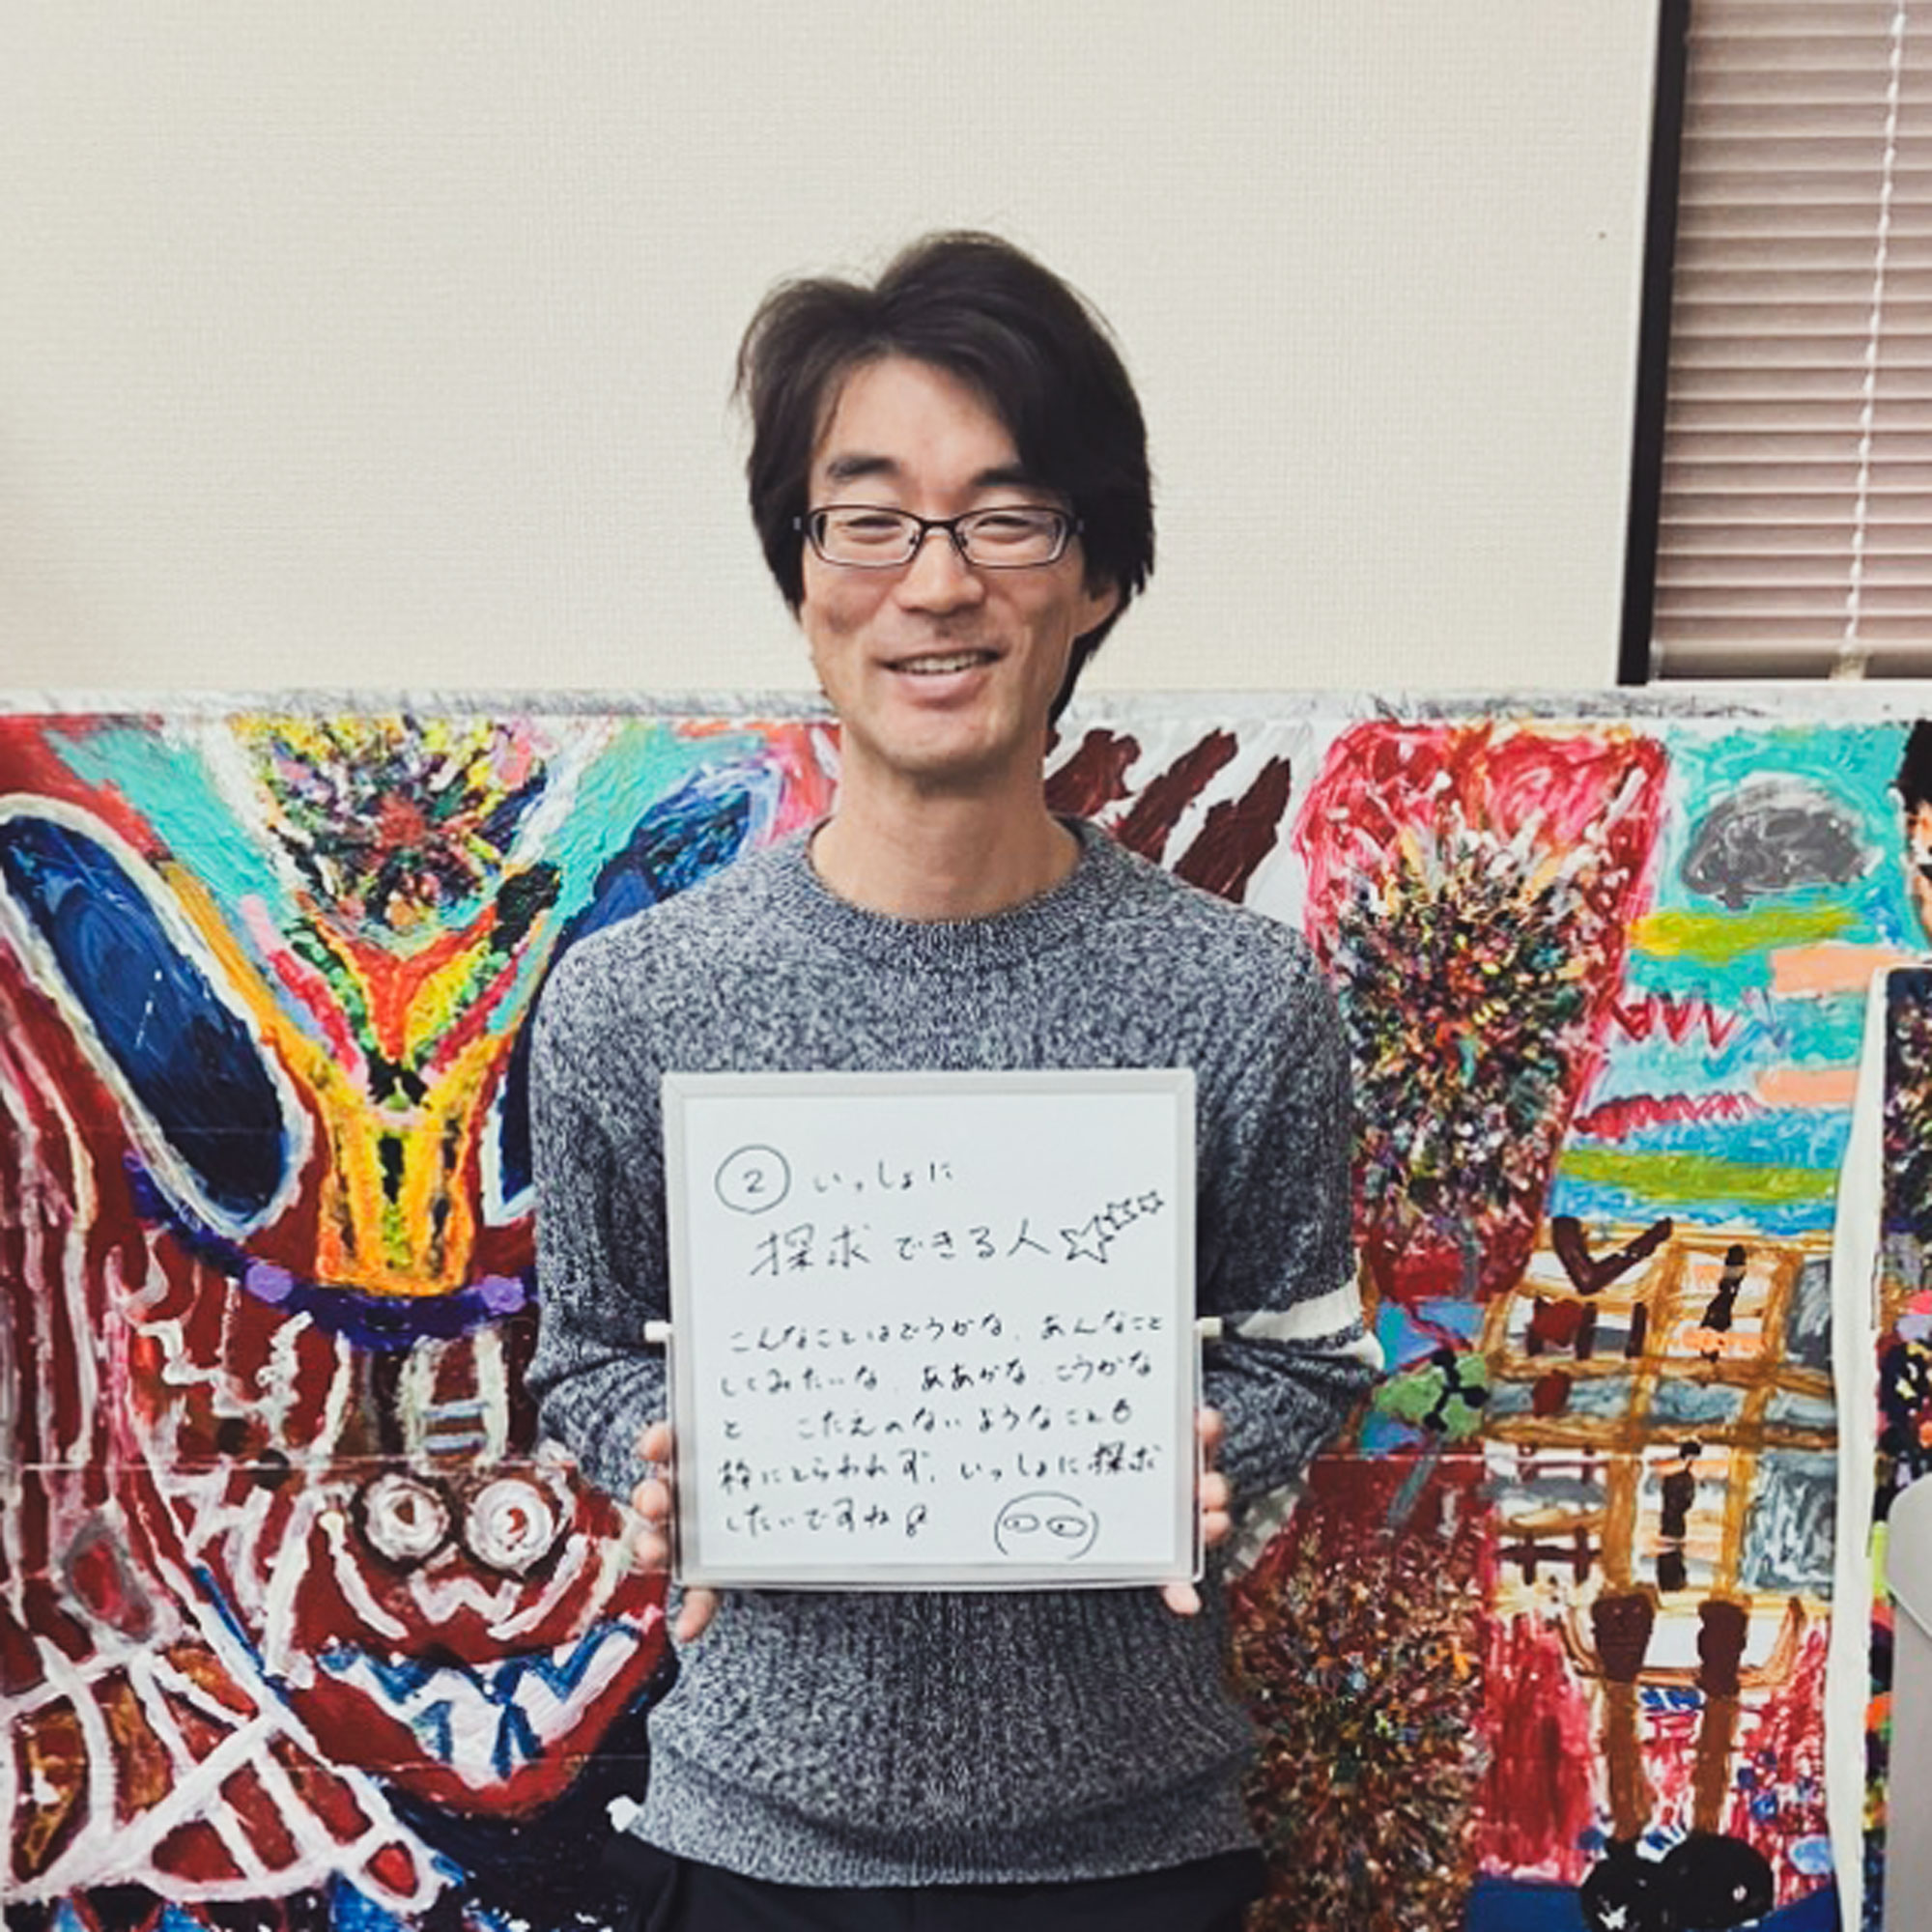 ② いっしょに
探求できる人
こんなことはどうかな、あんなこと
してみたいな、ああかな、こうかな
と こたえのないようなことも
枠にとらわれず、いっしょに探求
したいですね